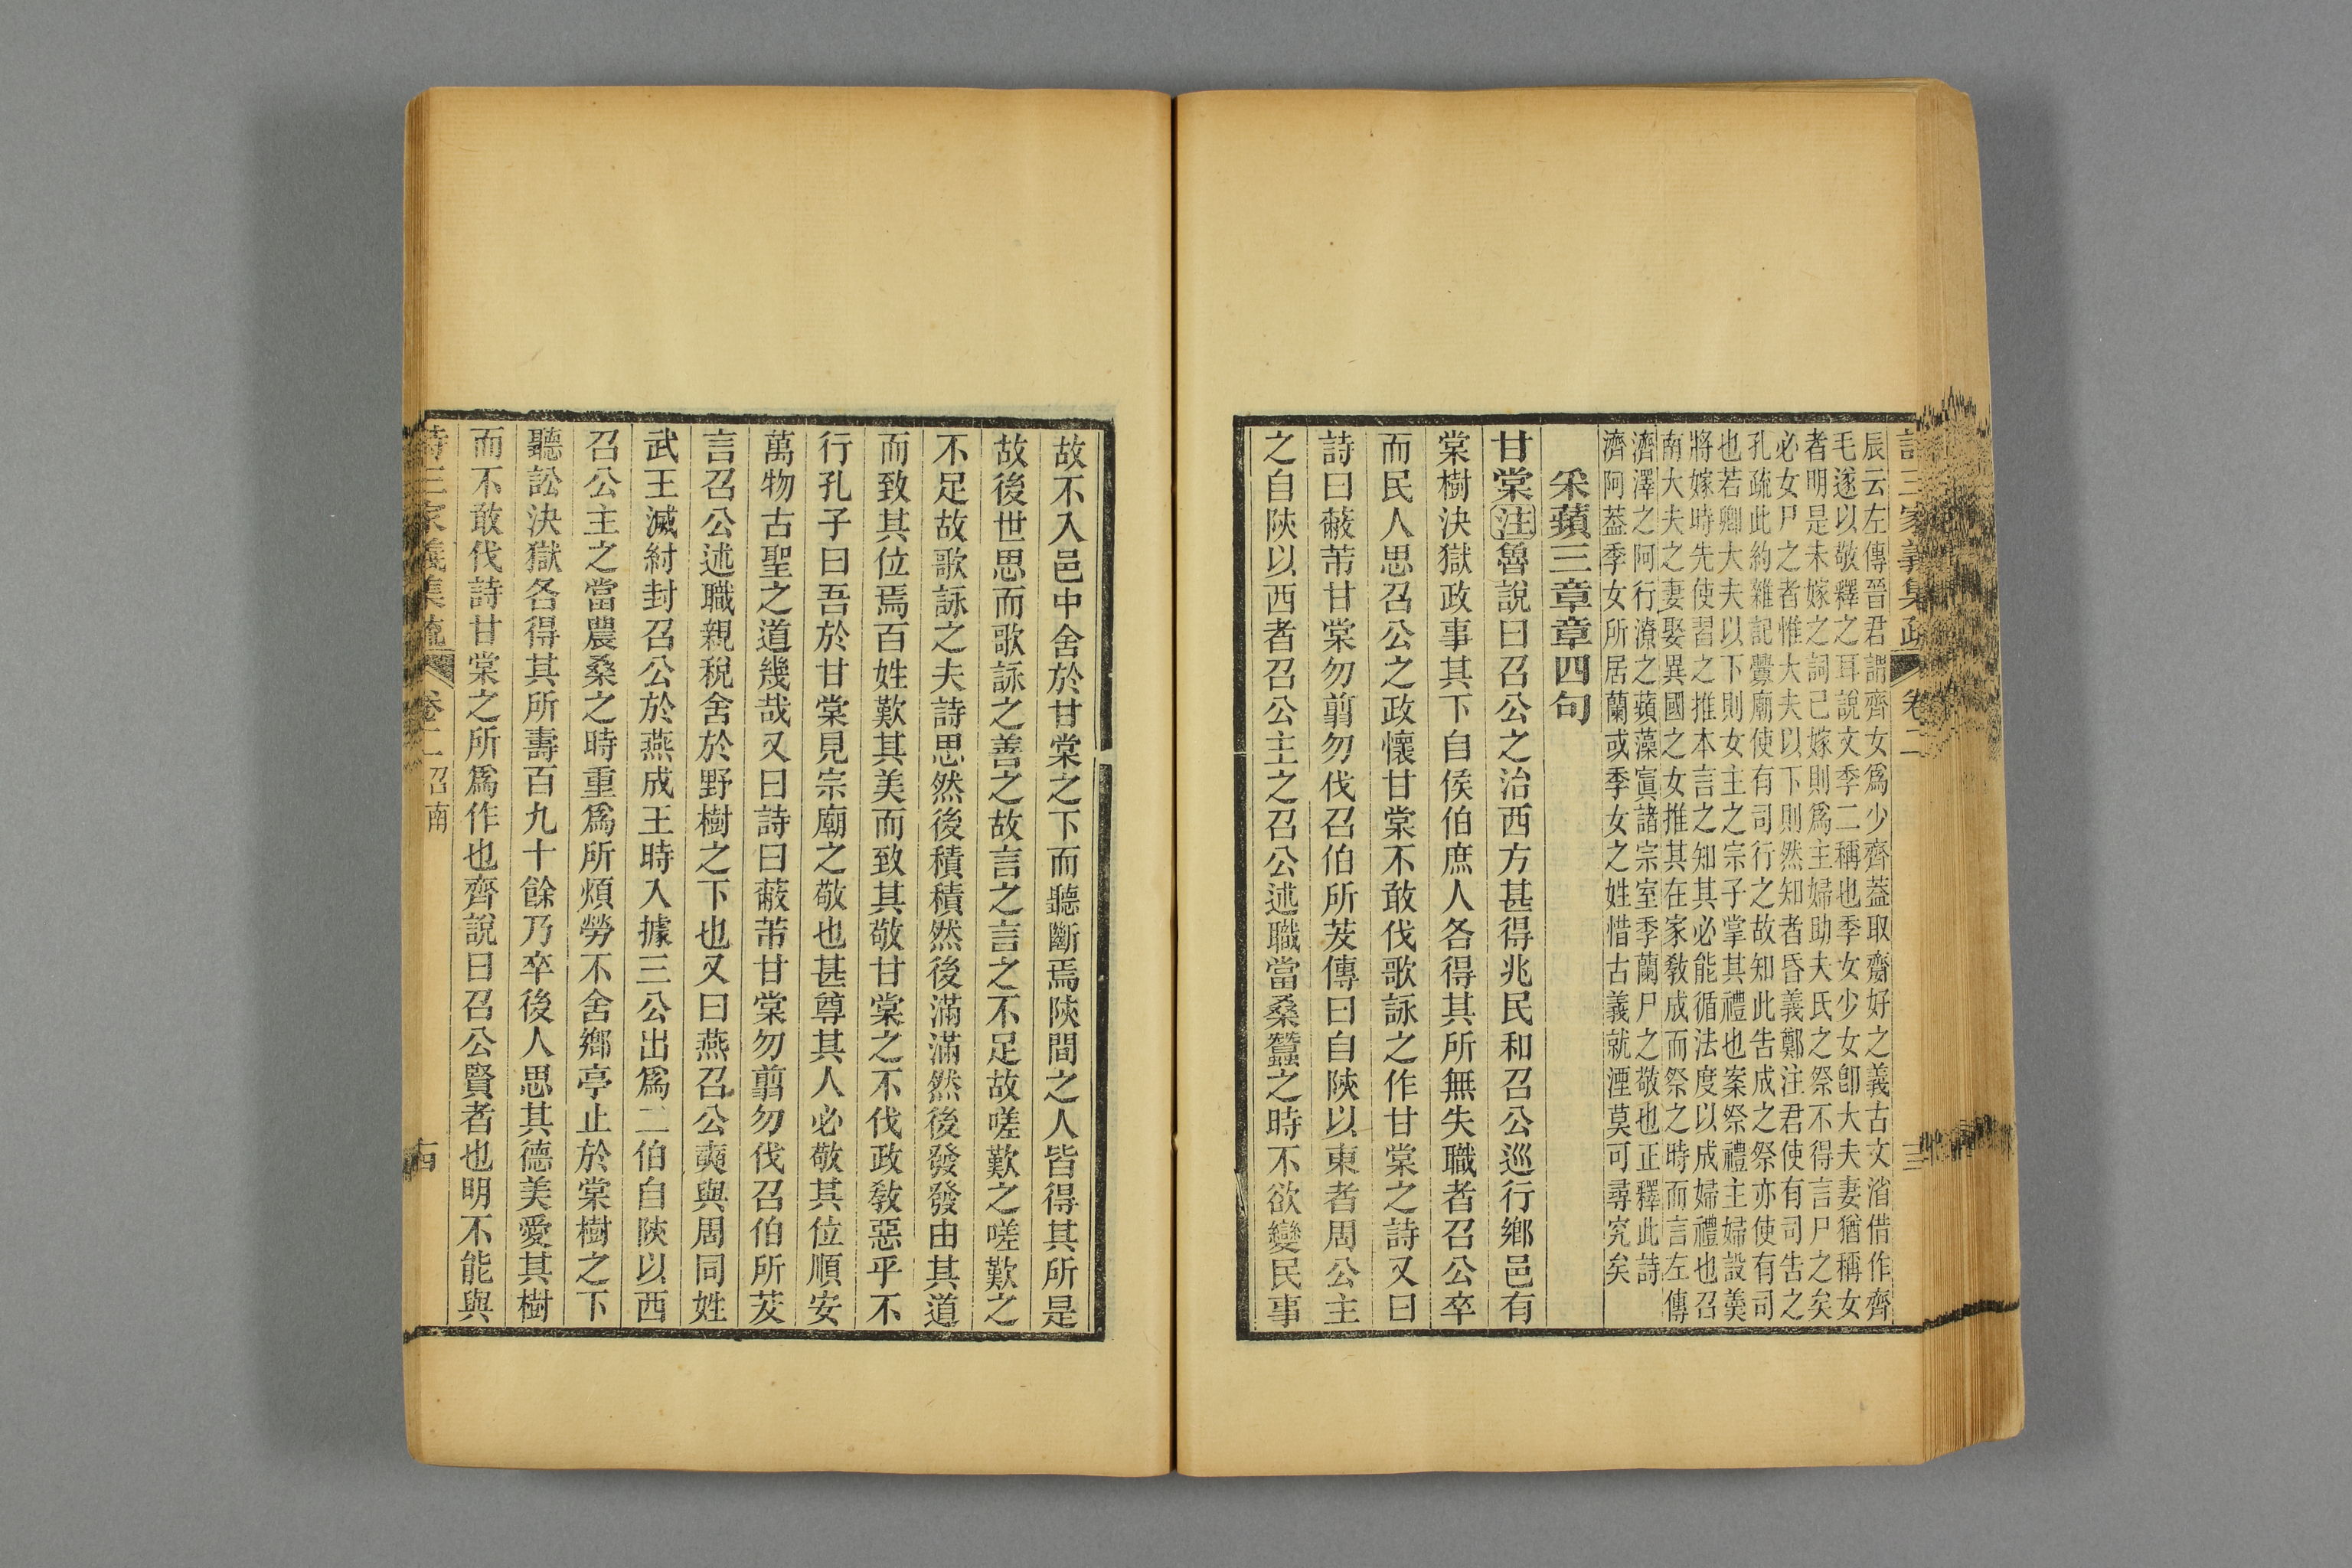 詩三家義集疏 卷二
辰云左傳晉君謂齊女爲少齊蓋取齋好之義古文渻借作齊
毛遂以敬釋之耳說文季二稱也季女少女卽大夫妻猶稱女
者明是未嫁之詞已嫁則爲主婦助夫氏之祭不得言尸之矣
必女尸之者惟大夫以下則然知者昏義鄭注君使有司告之
孔疏此約雜記釁廟使有司行之故知此告成之祭亦使有司
也若卿大夫以下則女主之宗子掌其禮也案祭禮主婦設羹
將嫁時先使習之推本言之知其必能循法度以成婦禮也召
南大夫之妻娶異國之女推其在家敎成而祭之時而言左傳
濟澤之阿行潦之蘋藻寘諸宗室季蘭尸之敬也正釋此詩
濟阿葢季女所居蘭或季女之姓惜古義就湮莫可尋究矣
采蘋三章章四句
甘棠注魯說曰召公之治西方甚得兆民和召公巡行鄉邑有
棠樹決獄政事其下自侯伯庶人各得其所無失職者召公卒
而民人思召公之政懷甘棠不敢伐歌詠之作甘棠之詩又曰
詩曰蔽芾甘棠勿翦勿伐召伯所茇傳曰自陝以東者周公主
之自陝以西者召公主之召公述職當桑蠶之時不欲變民事
故不入邑中舍於甘棠之下而聽斷焉陝間之人皆得其所是
故後世思而歌詠之善之故言之言之不足故嗟歎之嗟歎之
不足故歌詠之夫詩思然後積積然後滿滿然後發發由其道
而致其位焉百姓歎其美而致其敬甘棠之不伐政敎惡乎不
行孔子曰吾於甘棠見宗廟之敬也甚尊其人必敬其位順安
萬物古聖之道幾哉又曰詩曰蔽芾甘棠勿翦勿伐召伯所茇
言召公述職親稅舍於野樹之下也又曰燕召公奭與周同姓
武王滅紂封召公於燕成王時入據三公出爲二伯自陝以西
召公主之當農桑之時重爲所煩勞不舍鄉亭止於棠樹之下
聽訟決獄各得其所壽百九十餘乃卒後人思其德美愛其樹
而不敢伐詩甘棠之所爲作也齊說曰召公賢者也明不能與
詩三家義集疏 卷二 召南